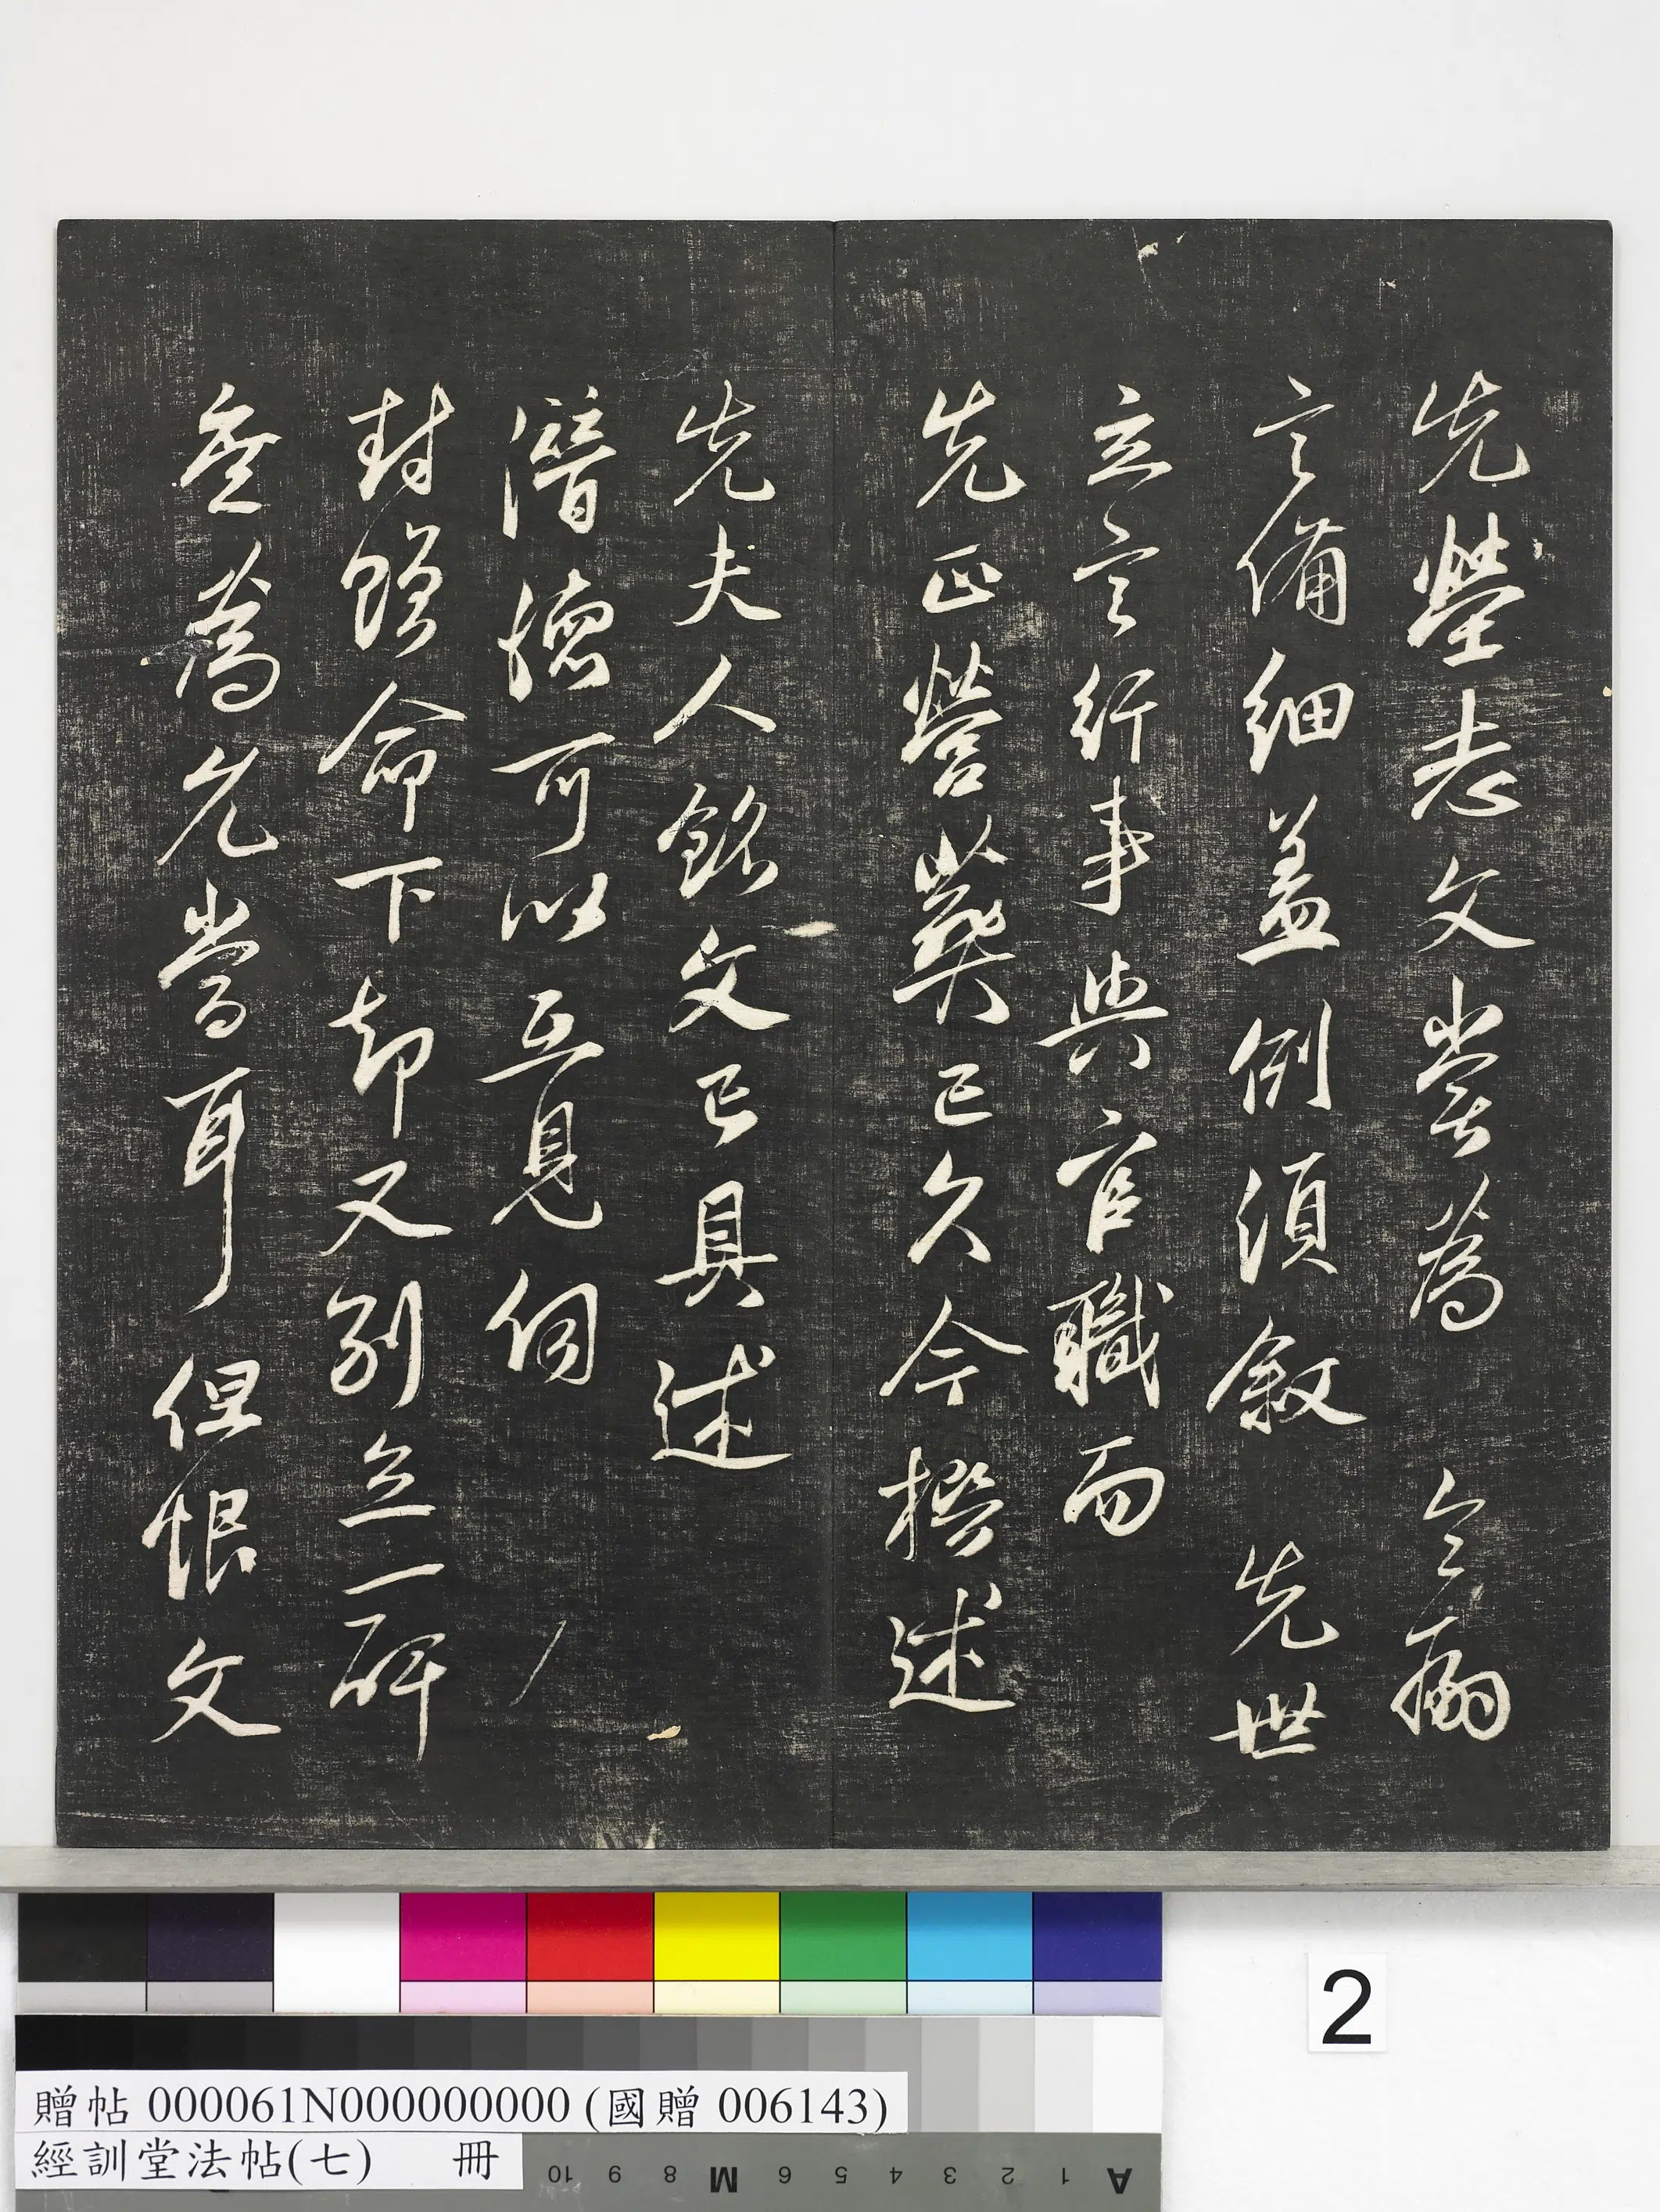 先塋志文嘗為 令嗣
言備細蓋例須敘 先世
立言行事與官職而
先正營葬已久今撰述
先夫人銘文已具述
潛德可以互見伺
封贈命下却又別立一碑
為允當耳但恨文
2
贈帖 000061N000000000 (國贈 006143)
經訓堂法帖(七) 冊
10 9 8 M 6 5 4 3 2 1 A